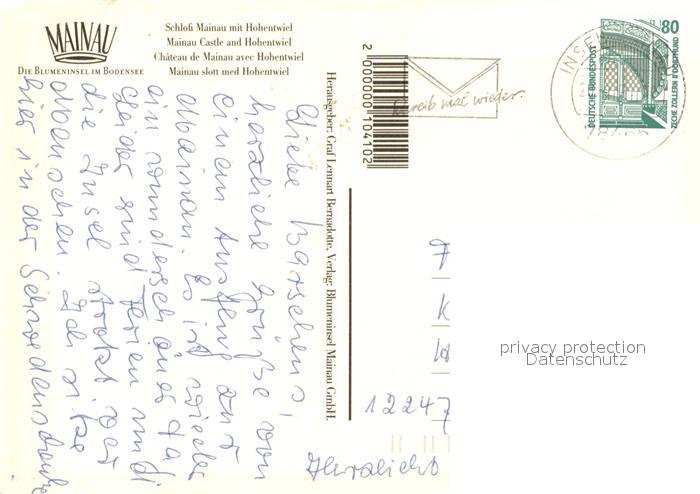 MAINAU
DIE BLUMENINSEL IM BODENSEE
Schloß Mainau mit Hohentwiel
Mainau Castle and Hohentwiel
Château de Mainau avec Hohentwiel
Mainau slott med Hohentwiel
Herausgeber: Graf Lennart Bernadotte, Verlag: Blumeninsel Mainau GmbH.
2 000000 104102
Schreib mal wieder.
INSEL
DEUTSCHE BUNDESPOST
80
ZECHE ZOLLERN II DORTMUND
Liebe
herzliche Grüße von
einem Ausflug auf
Mainau. Es ist wieder
ein wunderschöner Tag
Leider sind Ferien und
die Insel strotzt vor
Menschen. Ich sitze
hier in der Schwedenschenke
Herzlichst
12247
privacy protection
Datenschutz